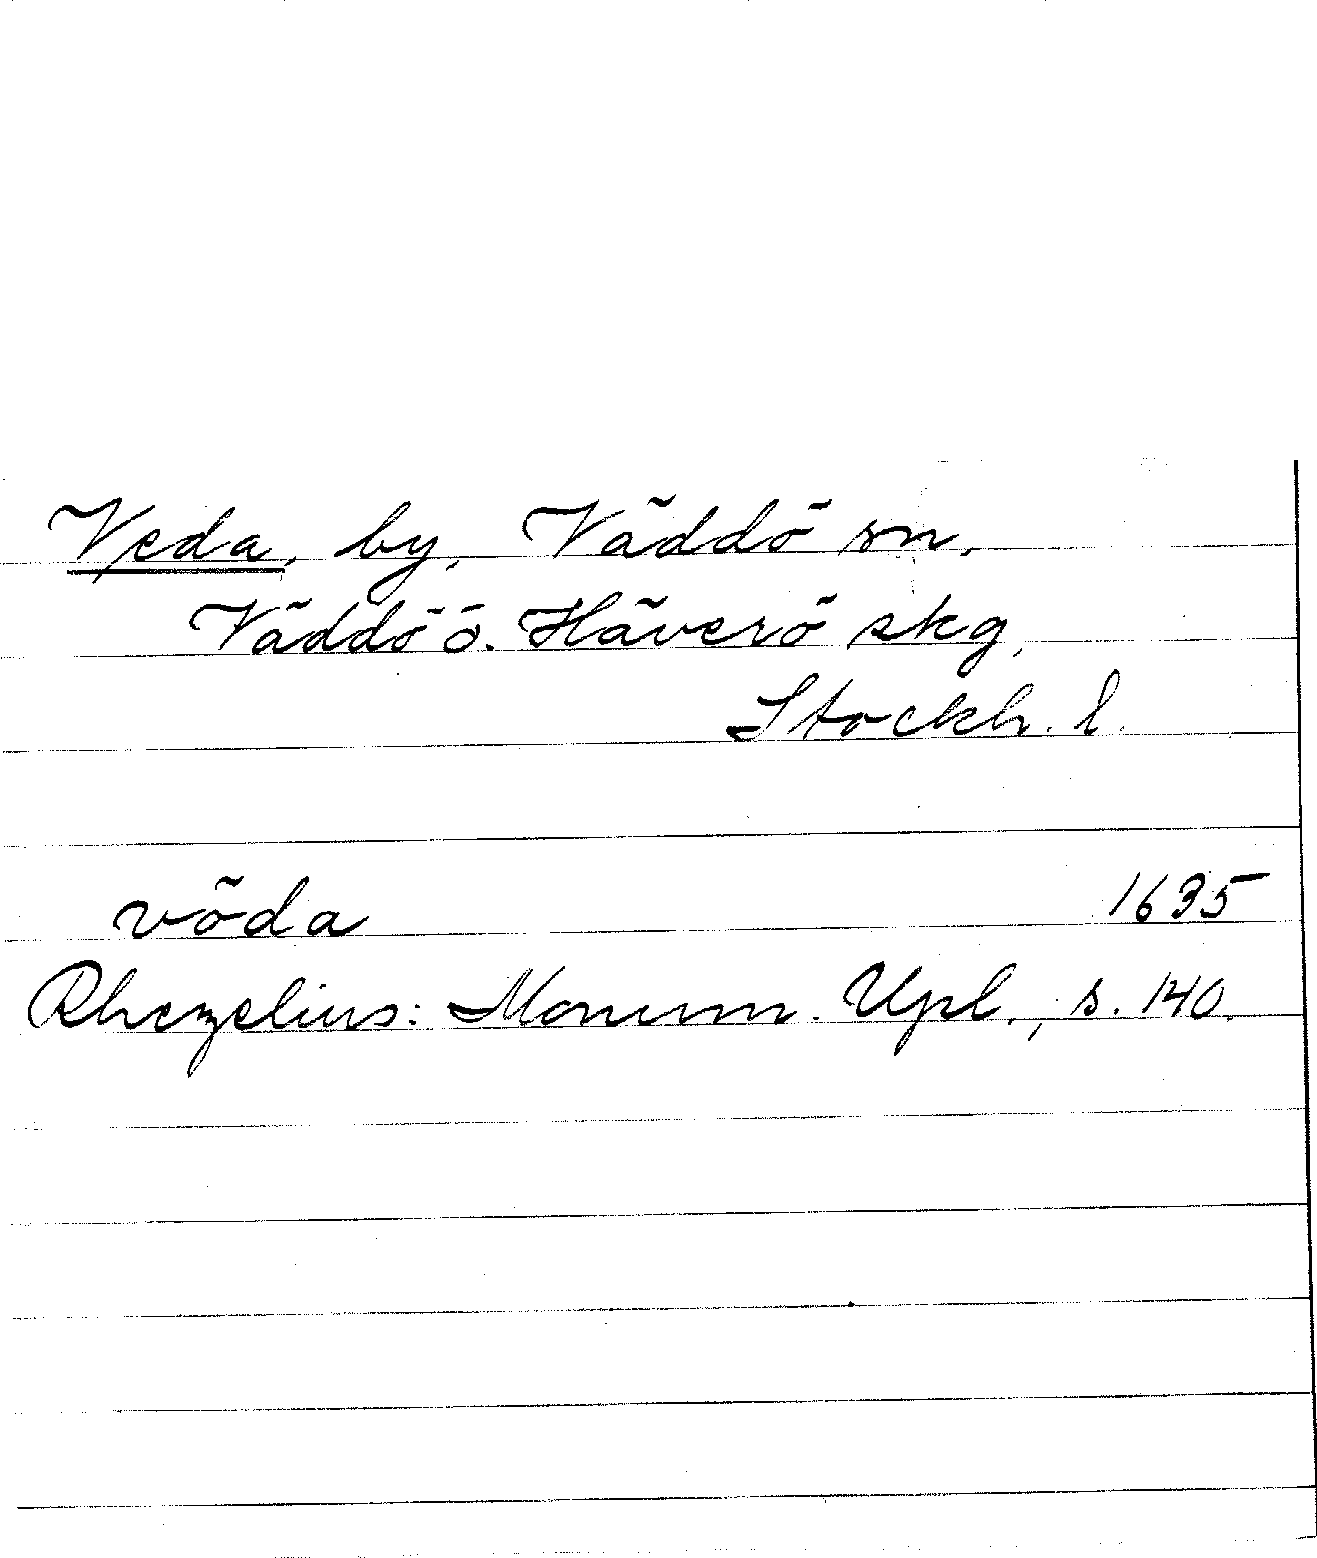 Veda, by, Väddö sn,
Väddö o. Häverö skg,
Stockh. l.
vöda 1635
Rhezelius: Monum. Upl., s. 140.